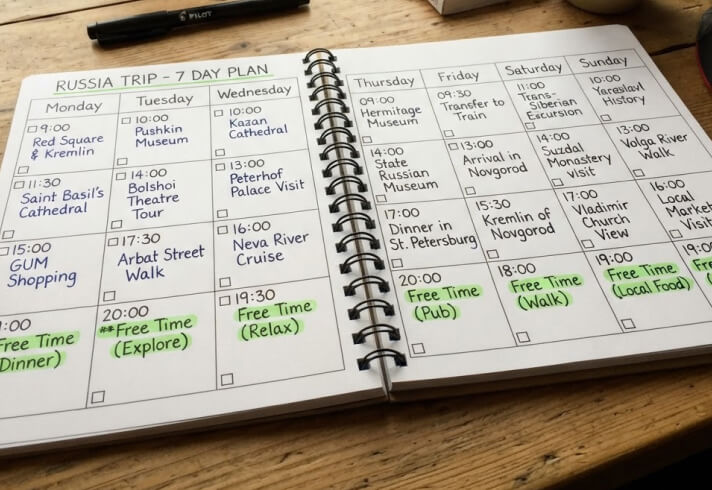 PILOT
RUSSIA TRIP - 7 DAY PLAN
Monday
Tuesday
Wednesday
9:00
Red Square
& Kremlin
10:00
Pushkin
Museum
10:00
Kazan
Cathedral
11:30
Saint Basil's
Cathedral
14:00
Bolshoi
Theatre
Tour
13:00
Peterhof
Palace Visit
15:00
GUM
Shopping
17:30
Arbat Street
Walk
16:00
Neva River
Cruise
:00
Free Time
(Dinner)
20:00
**Free Time
(Explore)
19:30
Free Time
(Relax)
Thursday
Friday
Saturday
Sunday
09:00
Hermitage
Museum
09:30
Transfer to
Train
11:00
Trans-
Siberian
Escursion
10:00
Yaraslavl
History
14:00
State
Russian
Museum
13:00
Arrival in
Novgorod
14:00
Suzdal
Monastery
visit
13:00
Volga River
Walk
17:00
Dinner in
St. Petersburg
15:30
Kremlin of
Novgorod
17:00
Vladimir
Church
View
16:00
Local
Market
Visit
20:00
Free Time
(Pub)
18:00
Free Time
(Walk)
19:00
Free Time
(Local Food)
19:0
Fre